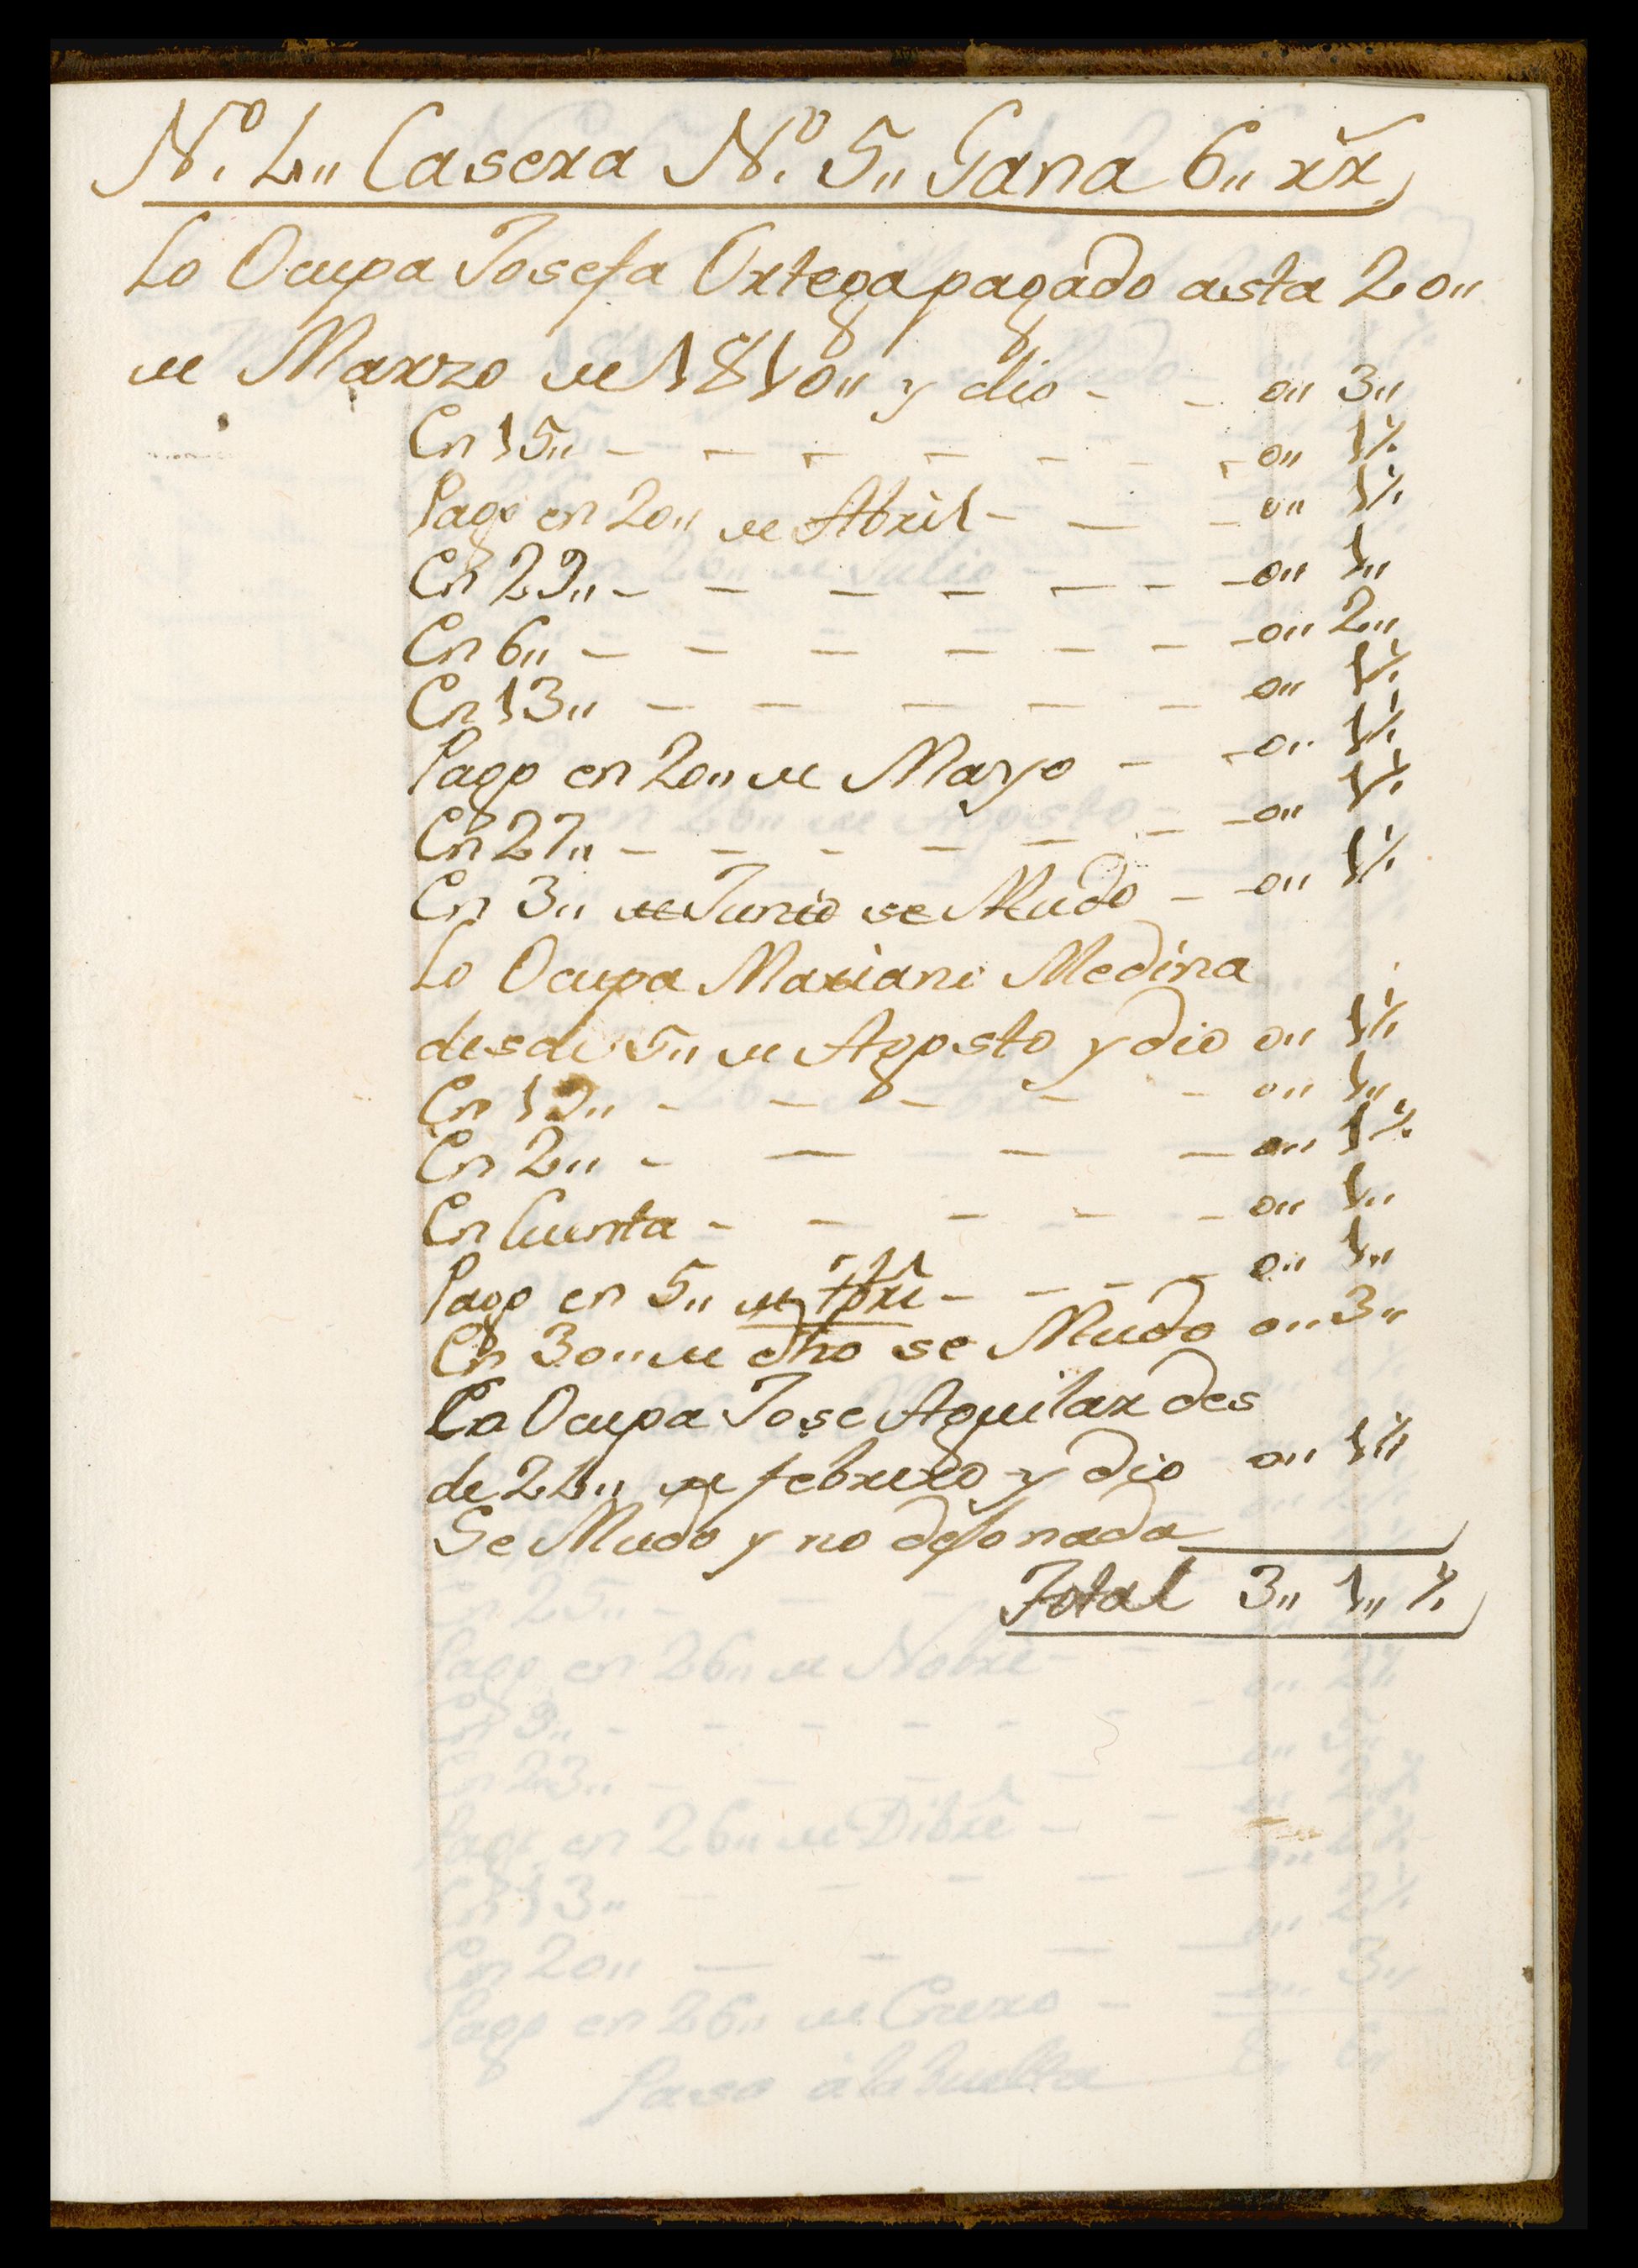 Nº. 4,, Casera Nº. 5,, Gana 6,, rr̃
Lo Ocupa Josefa Ortega pagado asta 20,,
de Marzo de 1810,, y dio - - 0,, 3,,
En 15,, - - - - - - - 0,, 1½
Pago en 20,, de Abril - - - 0,, 1½
En 29,, - - - - - - - 0,, 1,,
En 6,, - - - - - - - 0,, 2,,
En 13,, - - - - - 0,, 1½
Pago en 20,, de Mayo - - 0,, 1½
En 27,, - - - - - - - 0,, 1½
En 3,, de Junio se Mudo - - 0,, 1½
Lo Ocupa Mariano Medina
desde 5,, de Agosto y dio 0,, 1½
En 19,, - - - - - 0,, 1,,
En 2,, - - - - 0,, 1½
En Cuenta - - - - - 0,, 1,,
Pago en 5,, de 7bre - - - - 0,, 1,,
En 30,, de dho se Mudo 0,, 3,,
La Ocupa Jose Aguilar des
de 24,, de febrero y dio 0,, 1½
Se Mudo y no dejo nada
Total 3,, 1,, ½